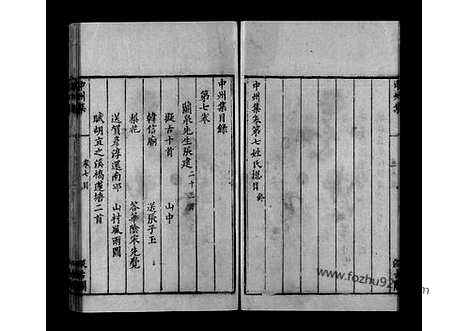 中州集卷第七姓氏總目終
中州集
中州集目錄
第七卷
蘭泉先生張建二十三首
擬古十首 山中
韓信廟 送張子玉
梨花 答華陰宋先覺
送賀彥淳還南邠 山村風雨圖
賦胡宜之溪橋蓮塘二首
中州集 卷七目
汲古閣
www.fozhu92